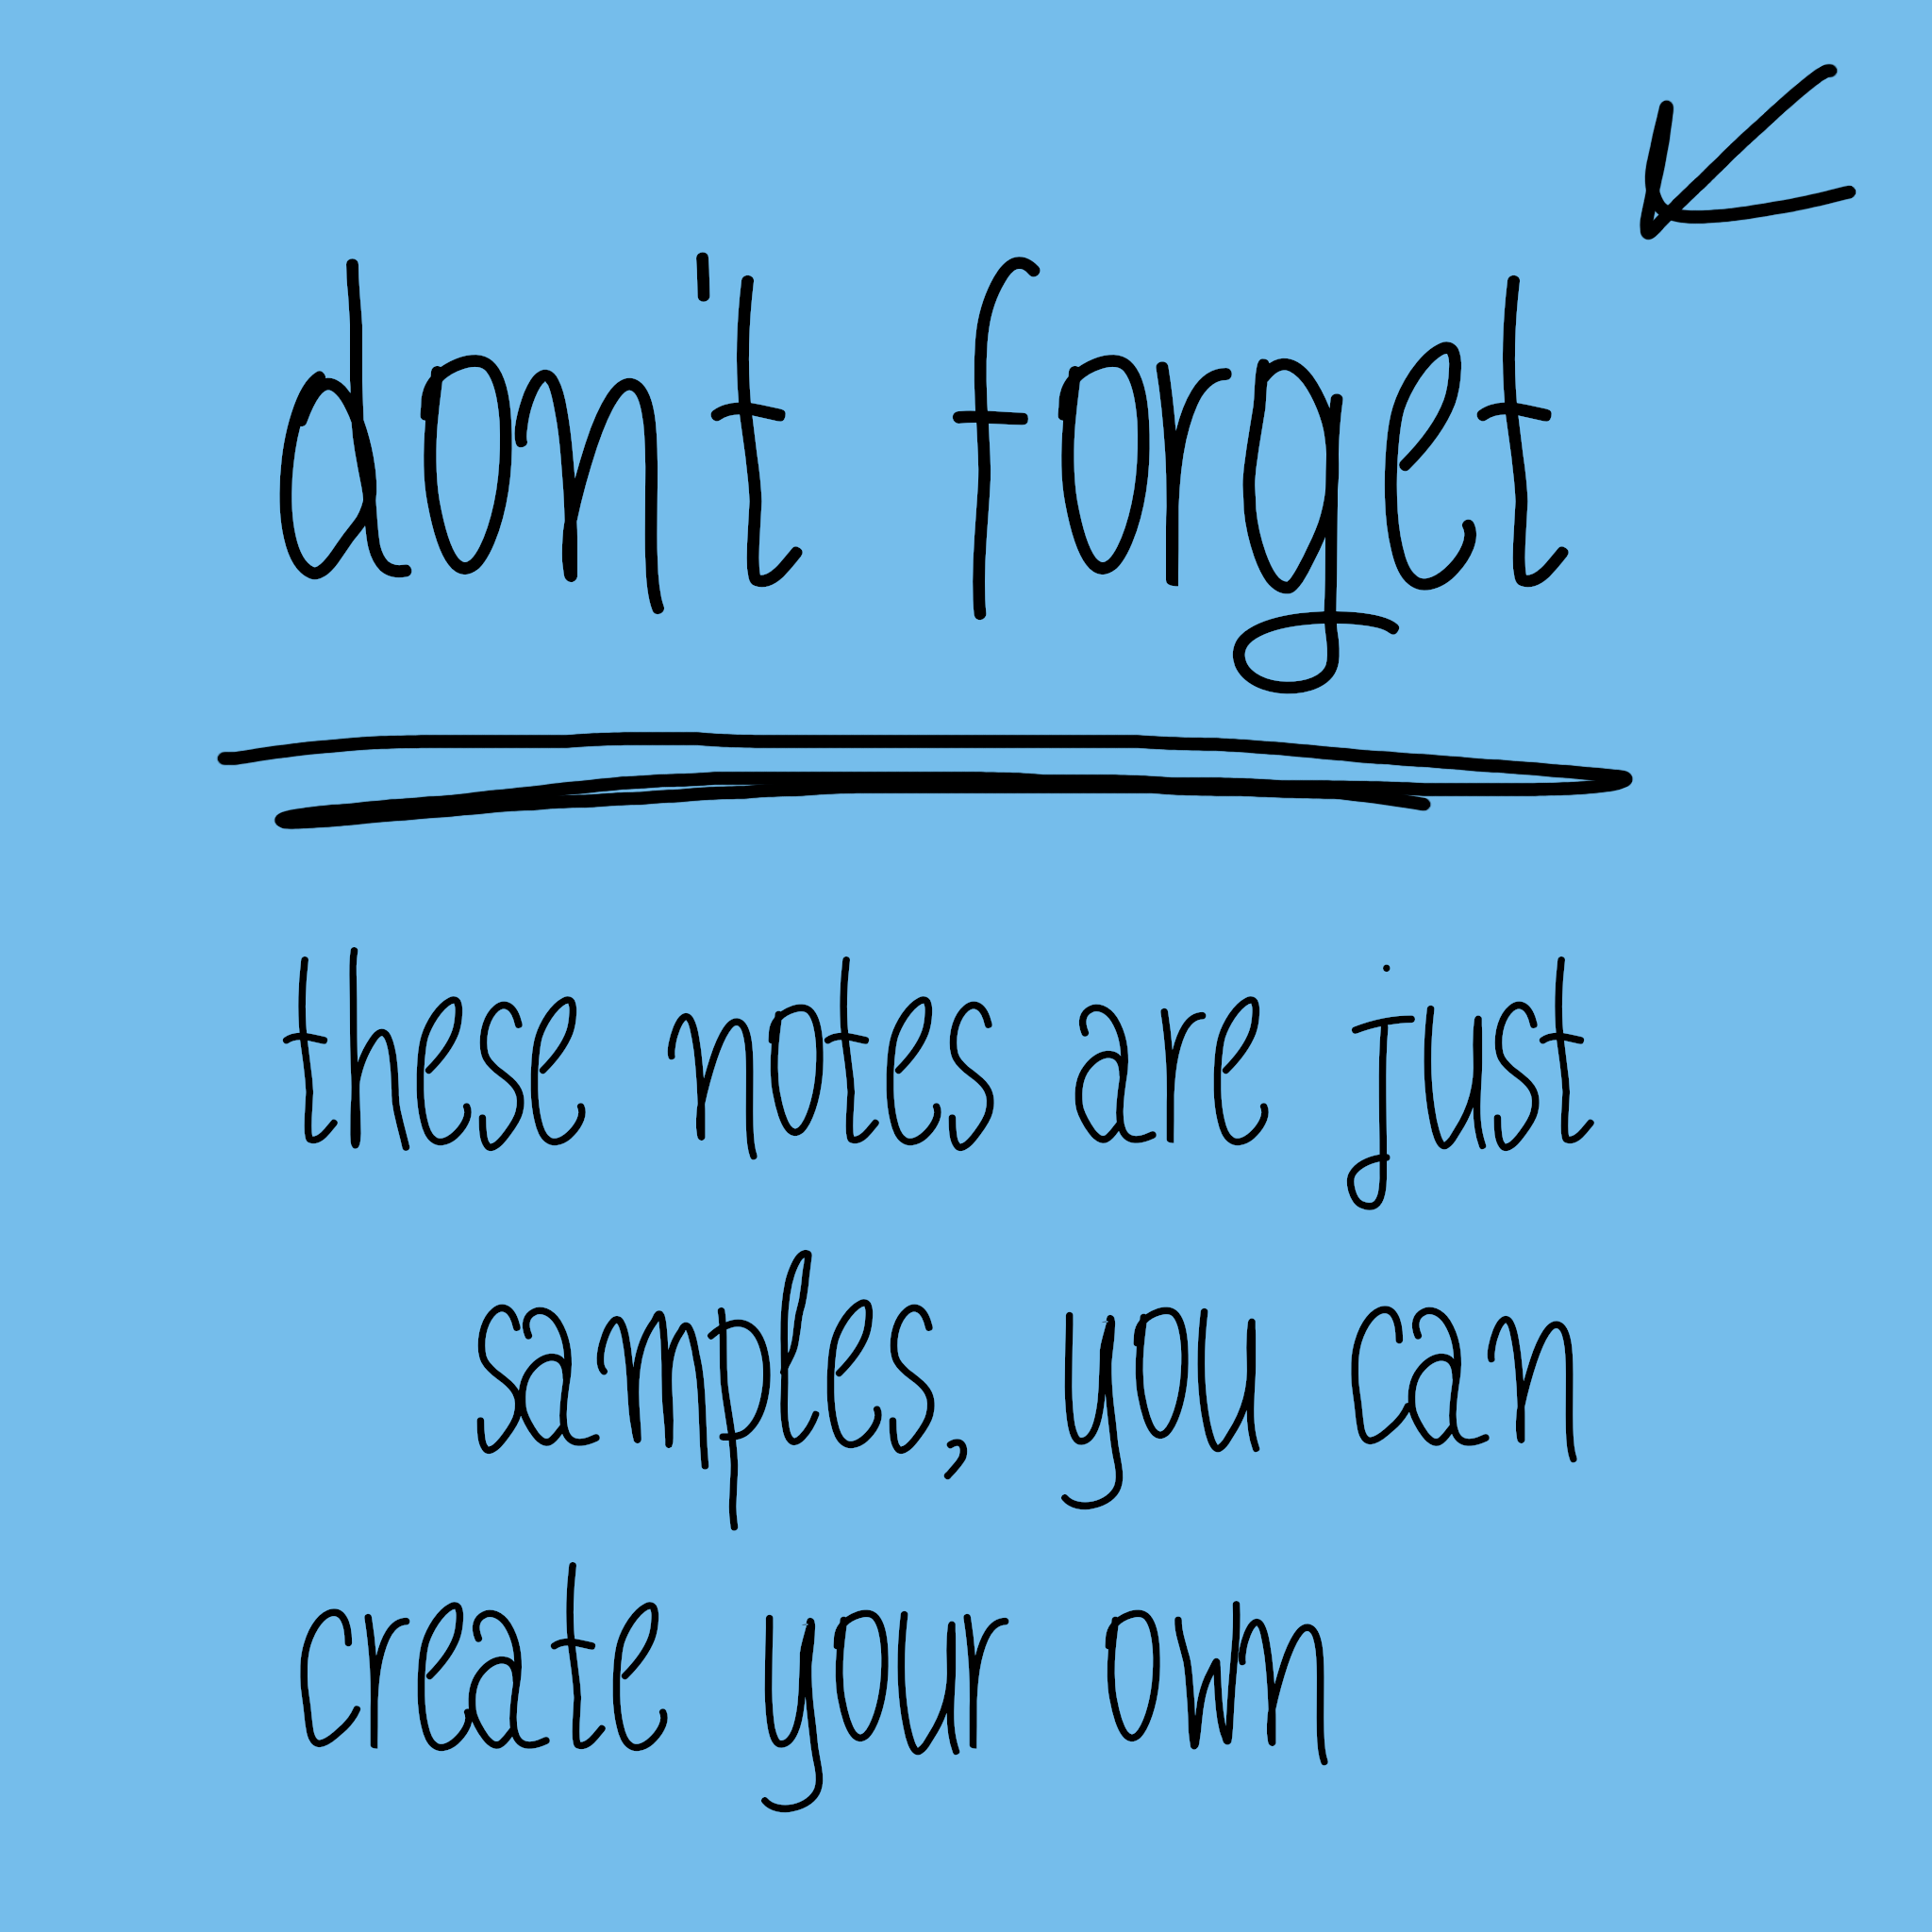 don't forget
these notes are just
samples, you can
create your own